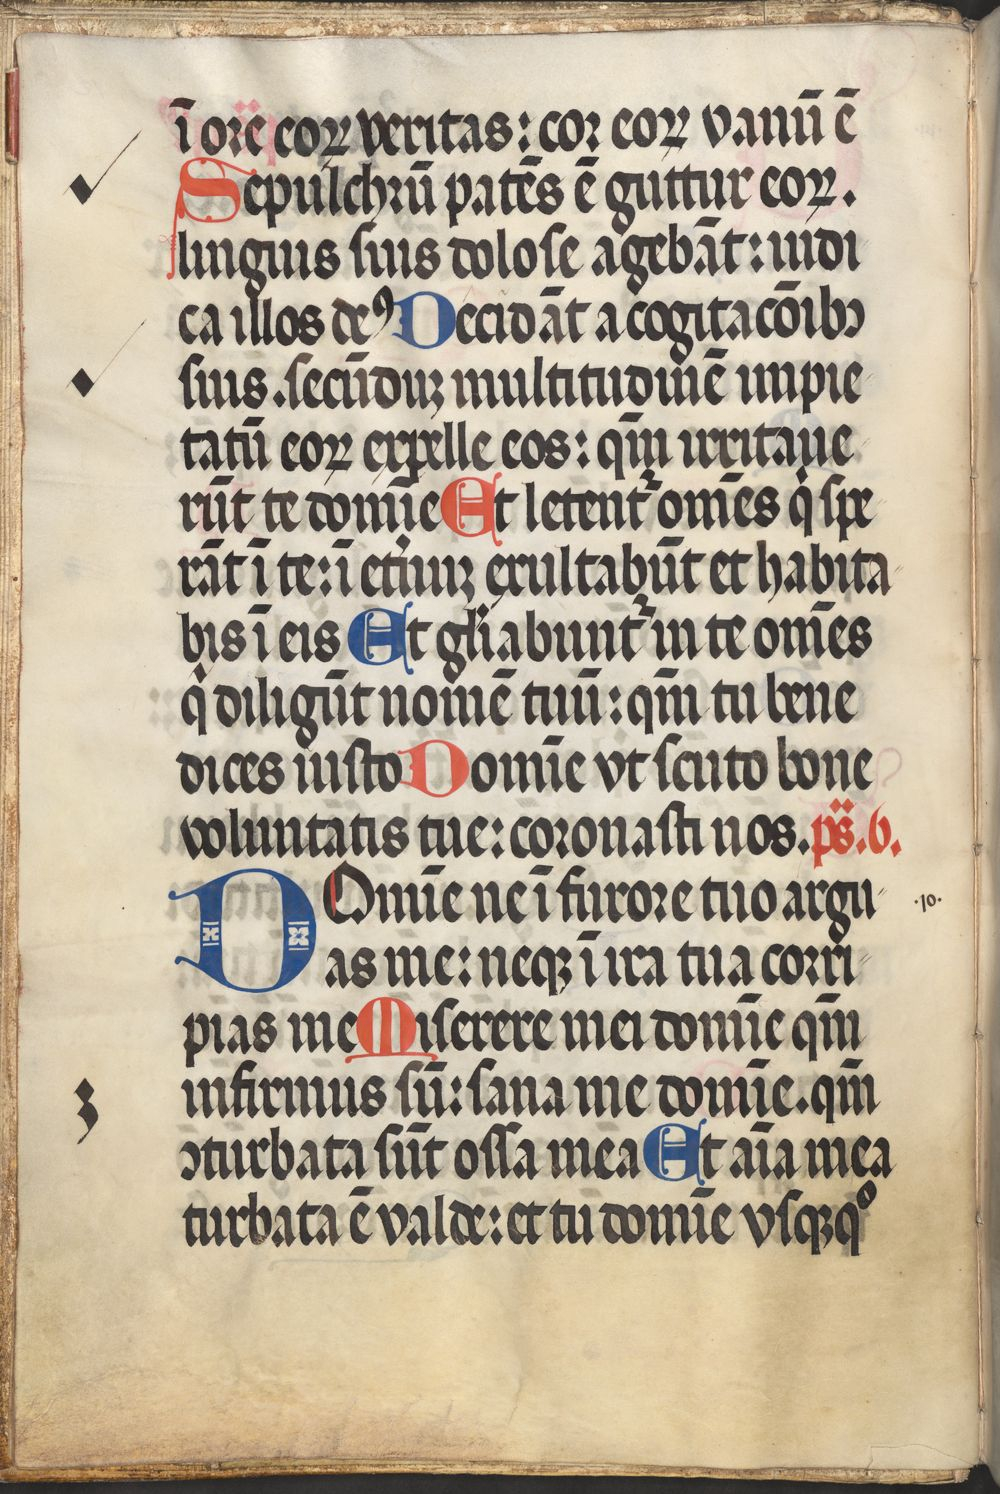 ī ore eoꝝ veritas: cor eoꝝ vanū ē
Sepulchrū patēs ē guttur eoꝝ.
linguis suis dolose agebāt: iudi
ca illos deꝰ Decidāt a cogitacōibꝫ
suis. secūduꝫ multitudinē impie
tatū eoꝝ expelle eos: qm̄ irritaue
rūt te domīe Et letentᷣ omēs qͥ spe
rāt ī te: ī etͥnuꝫ exultabūt et habita
bis ī eis Et glͥiabuntᷣ in te omēs
qͥ diligūt nomē tuū: qm̄ tu bene
dices iusto Domīe vt scuto bone
voluntatis tue: coronasti nos. ps̄. 6.
DOmīe ne ī furore tuo argu
.10.
as me: neqꝫ ī ira tua corri
pias me Miserere mei domīe qm̄
infirmus sū: sana me domīe. qm̄
ꝯturbata sūt ossa mea Et aīa mea
turbata ē valde: et tu domīe vsqꝫqͦ